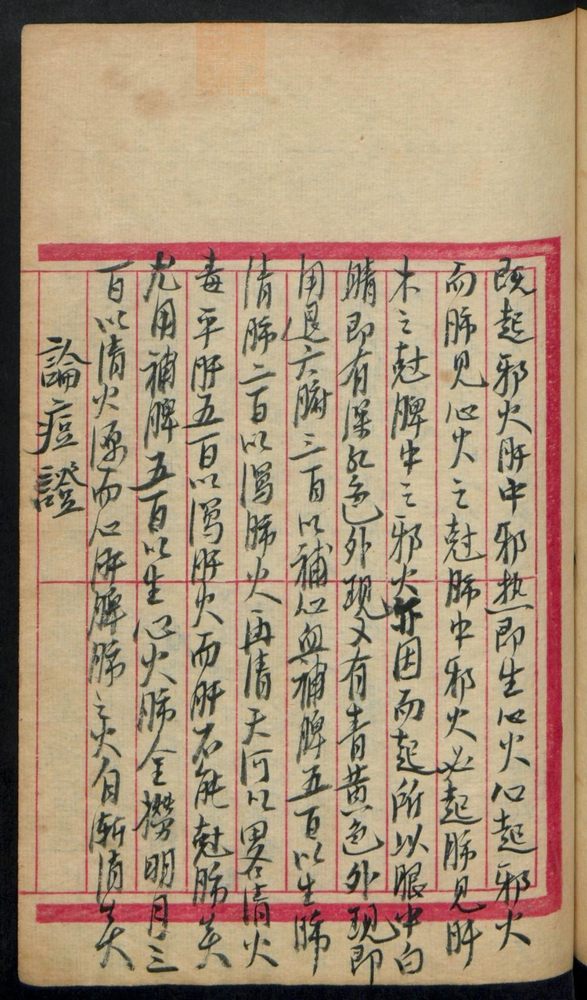 既起邪火肝中邪热即生心火心起邪火
而肺見心火之尅肺中邪火必起肺見肝
木之尅脾中之邪火亦因而起所以眼中白
睛即有深红色外现又有青黄色外现即
用退六腑三百以補心血補脾五百以生肺
清肺二百以瀉肺火再清天河以畧清火
毒平肝五百以瀉肝火而肝不能尅肺矣
尤用補脾五百以生心火肺金撈明月三
百以清火源而心肝脾肺之火自漸消矣
論痘證